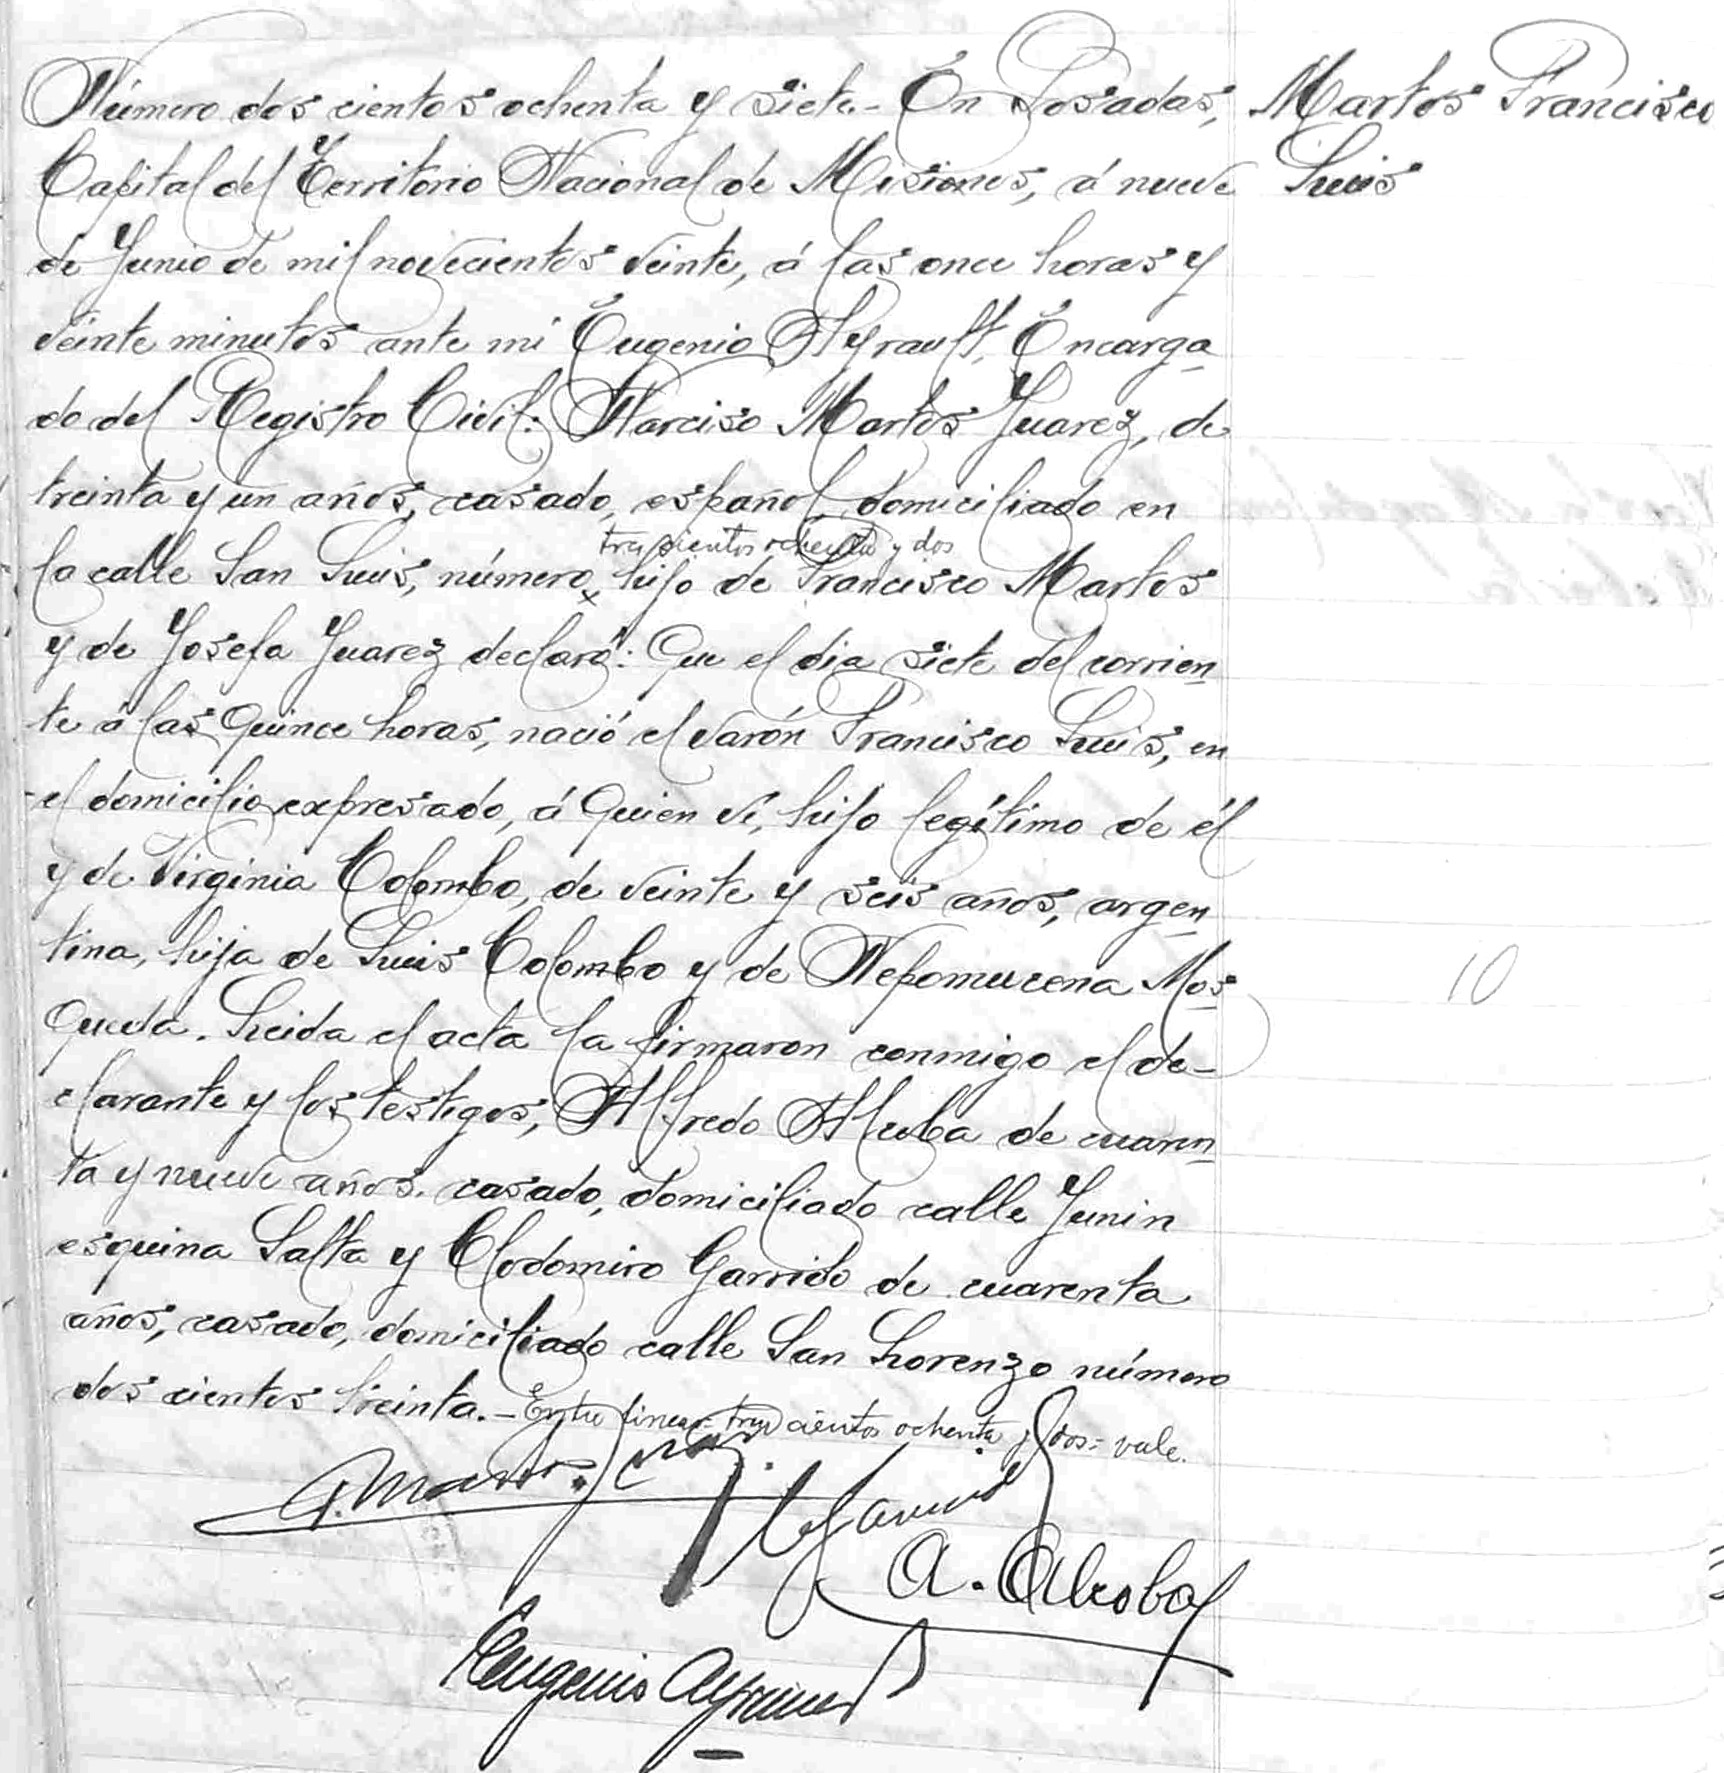 Número dos cientos ochenta y siete.- En Posadas,
Martos Francisco
Luis
Capital del Territorio Nacional de Misiones, á nueve
de Junio de mil novecientos veinte, á las once horas y
veinte minutos ante mi Eugenio Ayrault, Encarga
do del Registro Civil: Narciso Martos Juarez, de
treinta y un años, casado, español, domiciliado en
tres cientos ochenta y dos
la calle San Luis, número x hijo de Francisco Martos
y de Josefa Juarez declaró: Que el dia siete del corrien
te á las quince horas, nació el varón Francisco Luis, en
el domicilio expresado, á quien ví, hijo legítimo de él
y de Virginia Colombo, de veinte y seis años, argen
tina, hija de Luis Colombo y de Nepomucena Mos
queda. Leida el acta la firmaron conmigo el de-
clarante y los testigos, Alfredo de cuaren
ta y nueve años, casado, domiciliado calle Junin
esquina Salta y Clodomiro Garrido de cuarenta
años, casado, domiciliado calle San Lorenzo número
dos cientos treinta.- Entre lineas- tres cientos ochenta y dos= vale.
Eugenio Ayrault
10